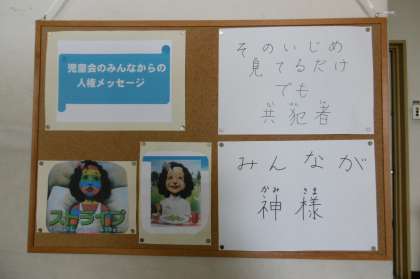 児童会のみんなからの
人権メッセージ
そのいじめ
見てるだけ
でも
共犯者
みんなが
かみ さま
神様
ストライプ